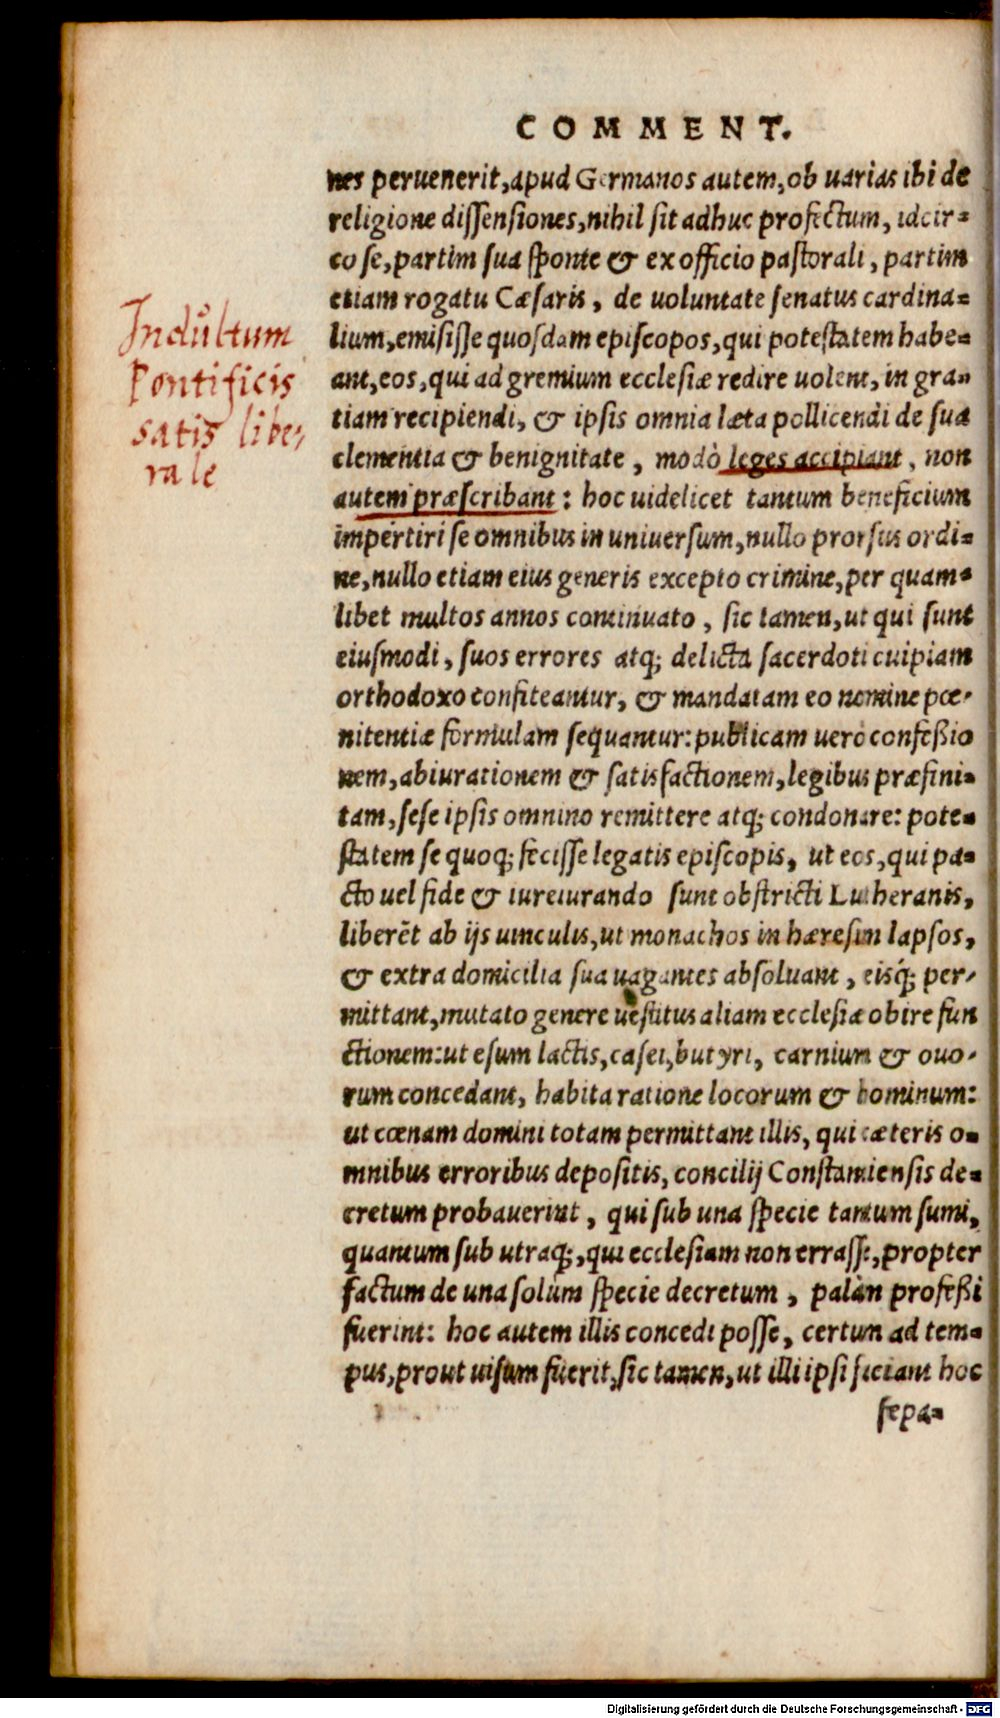 COMMENT.
nes peruenerit, apud Germanos autem, ob uarias ibi de
religione dissensiones, nihil sit adhuc profectum, idcir=
co se, partim sua sponte & ex officio pastorali, partim
etiam rogatu Cæsaris, de uoluntate senatus cardina=
lium, emisisse quosdam episcopos, qui potestatem habe=
ant, eos, qui ad gremium ecclesiæ redire uolent, in gra=
tiam recipiendi, & ipsis omnia læta pollicendi de sua
clementia & benignitate, modò leges accipiant, non
autem præscribant: hoc uidelicet tantum beneficium
impertiri se omnibus in uniuersum, nullo prorsus ordi=
ne, nullo etiam eius generis excepto crimine, per quam=
libet multos annos continuato, sic tamen, ut qui sunt
eiusmodi, suos errores atq; delicta sacerdoti cuipiam
orthodoxo confiteantur, & mandatam eo nomine pœ-
nitentiæ formulam sequantur: publicam uerò confeßio
nem, abiurationem & satisfactionem, legibus præfini=
tam, sese ipsis omnino remittere atq; condonare: pote=
statem se quoq; fecisse legatis episcopis, ut eos, qui pa=
cto uel fide & iureiurando sunt obstricti Lutheranis,
liberēt ab ijs uinculis, ut monachos in hæresim lapsos,
& extra domicilia sua uagantes absoluant, eisq́; per-
mittant, mutato genere uestitus aliam ecclesiæ obire fun
ctionem: ut esum lactis, casei, butyri, carnium & ouo-
rum concedant, habita ratione locorum & hominum:
ut cœnam domini totam permittant illis, qui cæteris o=
mnibus erroribus depositis, concilij Constantiensis de=
cretum probauerint, qui sub una specie tantum sumi,
quantum sub utraq;, qui ecclesiam non errasse, propter
factum de una solùm specie decretum, palàm profeßi
fuerint: hoc autem illis concedi posse, certum ad tem=
pus, prout uisum fuerit, sic tamen, ut illi ipsi sciant hoc
sepa=
Indultum
Pontificis
satis libe,
rale
Digitalisierung gefördert durch die Deutsche Forschungsgemeinschaft - DFG